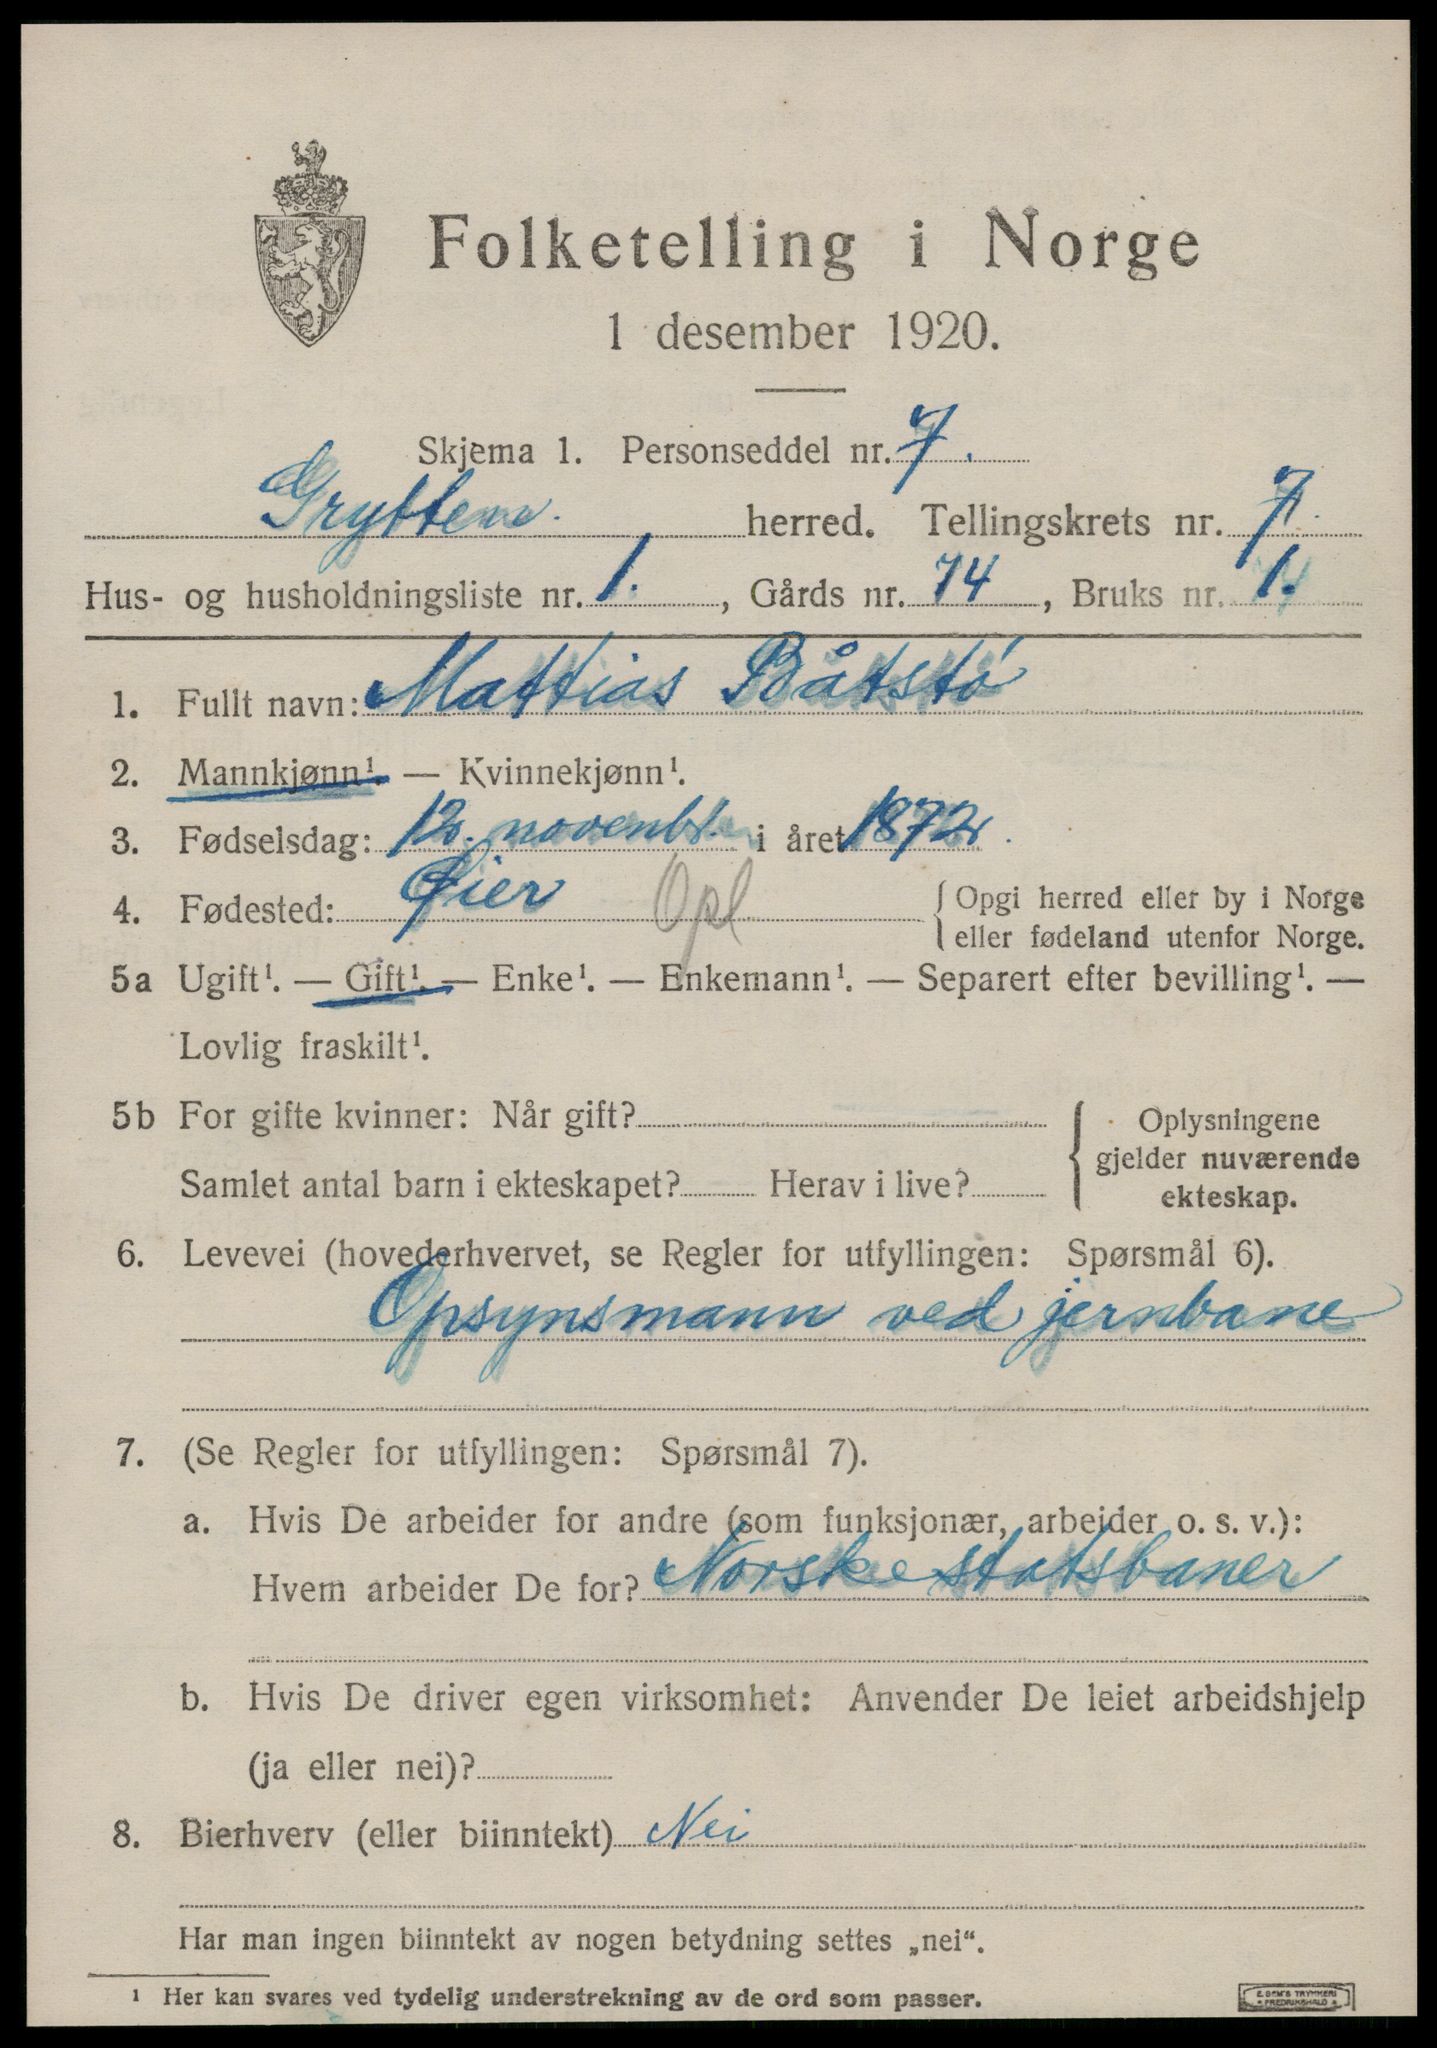 Folketelling i Norge
1 desember 1920.
Skjema 1. Personseddel nr. 7.
Grytten herred. Tellingskrets nr. 7.
Hus- og husholdningsliste nr. 1., Gårds nr. 74, Bruks nr. 1.
1. Fullt navn: Mattias Båtstø
2. Mannkjønn¹. — Kvinnekjønn¹.
3. Fødselsdag: 12. novembr. i året 1872.
4. Fødested: Øier Opl { Opgi herred eller by i Norge
eller fødeland utenfor Norge.
5a Ugift¹. — Gift¹. — Enke¹. — Enkemann¹. — Separert efter bevilling¹. —
Lovlig fraskilt¹.
5b For gifte kvinner: Når gift? { Oplysningene
gjelder nuværende
Samlet antal barn i ekteskapet? Herav i live? ekteskap.
6. Levevei (hovederhvervet, se Regler for utfyllingen: Spørsmål 6).
Opsynsmann ved jernbane
7. (Se Regler for utfyllingen: Spørsmål 7).
a. Hvis De arbeider for andre (som funksjonær, arbeider o. s. v.):
Hvem arbeider De for? Norske statsbaner
b. Hvis De driver egen virksomhet: Anvender De leiet arbeidshjelp
(ja eller nei)?
8. Bierhverv (eller biinntekt) Nei
Har man ingen biinntekt av nogen betydning settes „nei“.
¹ Her kan svares ved tydelig understrekning av de ord som passer.
E. SEM'S TRYKKERI
FREDRIKSHALD